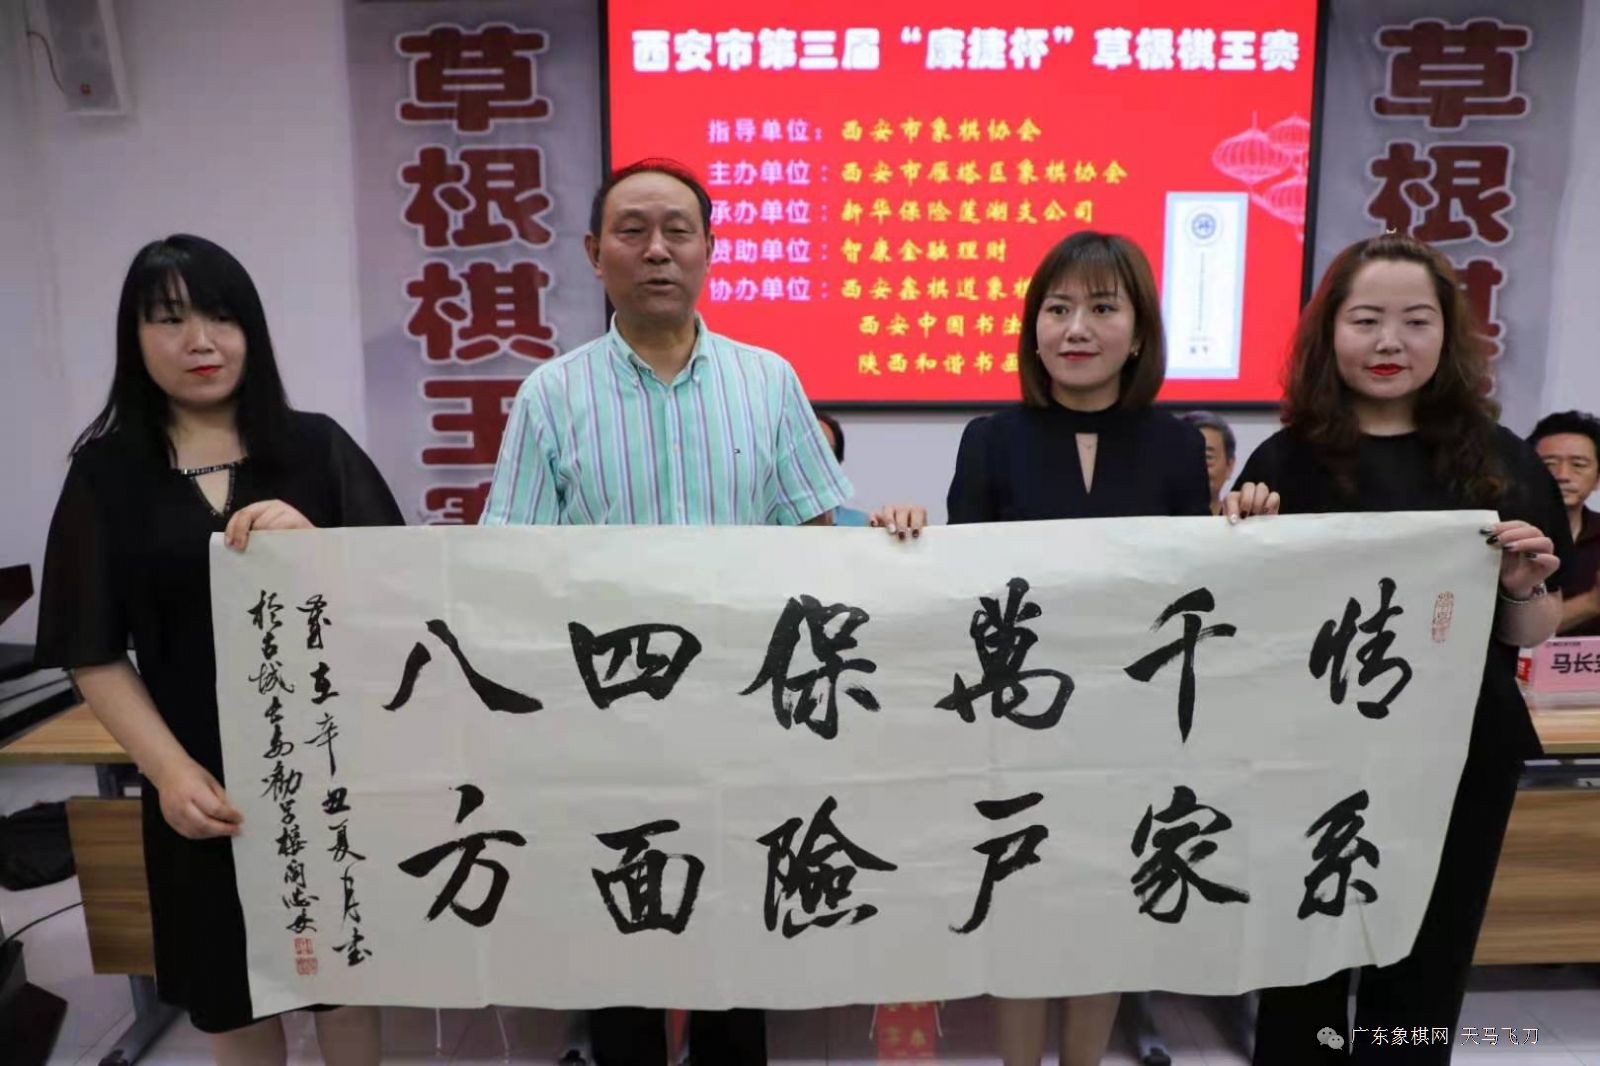 草根棋王赛
西安市第三届“康捷杯”草根棋王赛
指导单位：西安市象棋协会
主办单位：西安市雁塔区象棋协会
承办单位：新华保险莲湖支公司
赞助单位：智康金融理财
协办单位：西安鑫棋道象棋
西安中国书法
陕西和谐书画
草根棋
情系
千家
萬户
保險
四面
八方
辛丑夏月书
於古城長安勸学楼
马长安
广东象棋网 天马飞刀